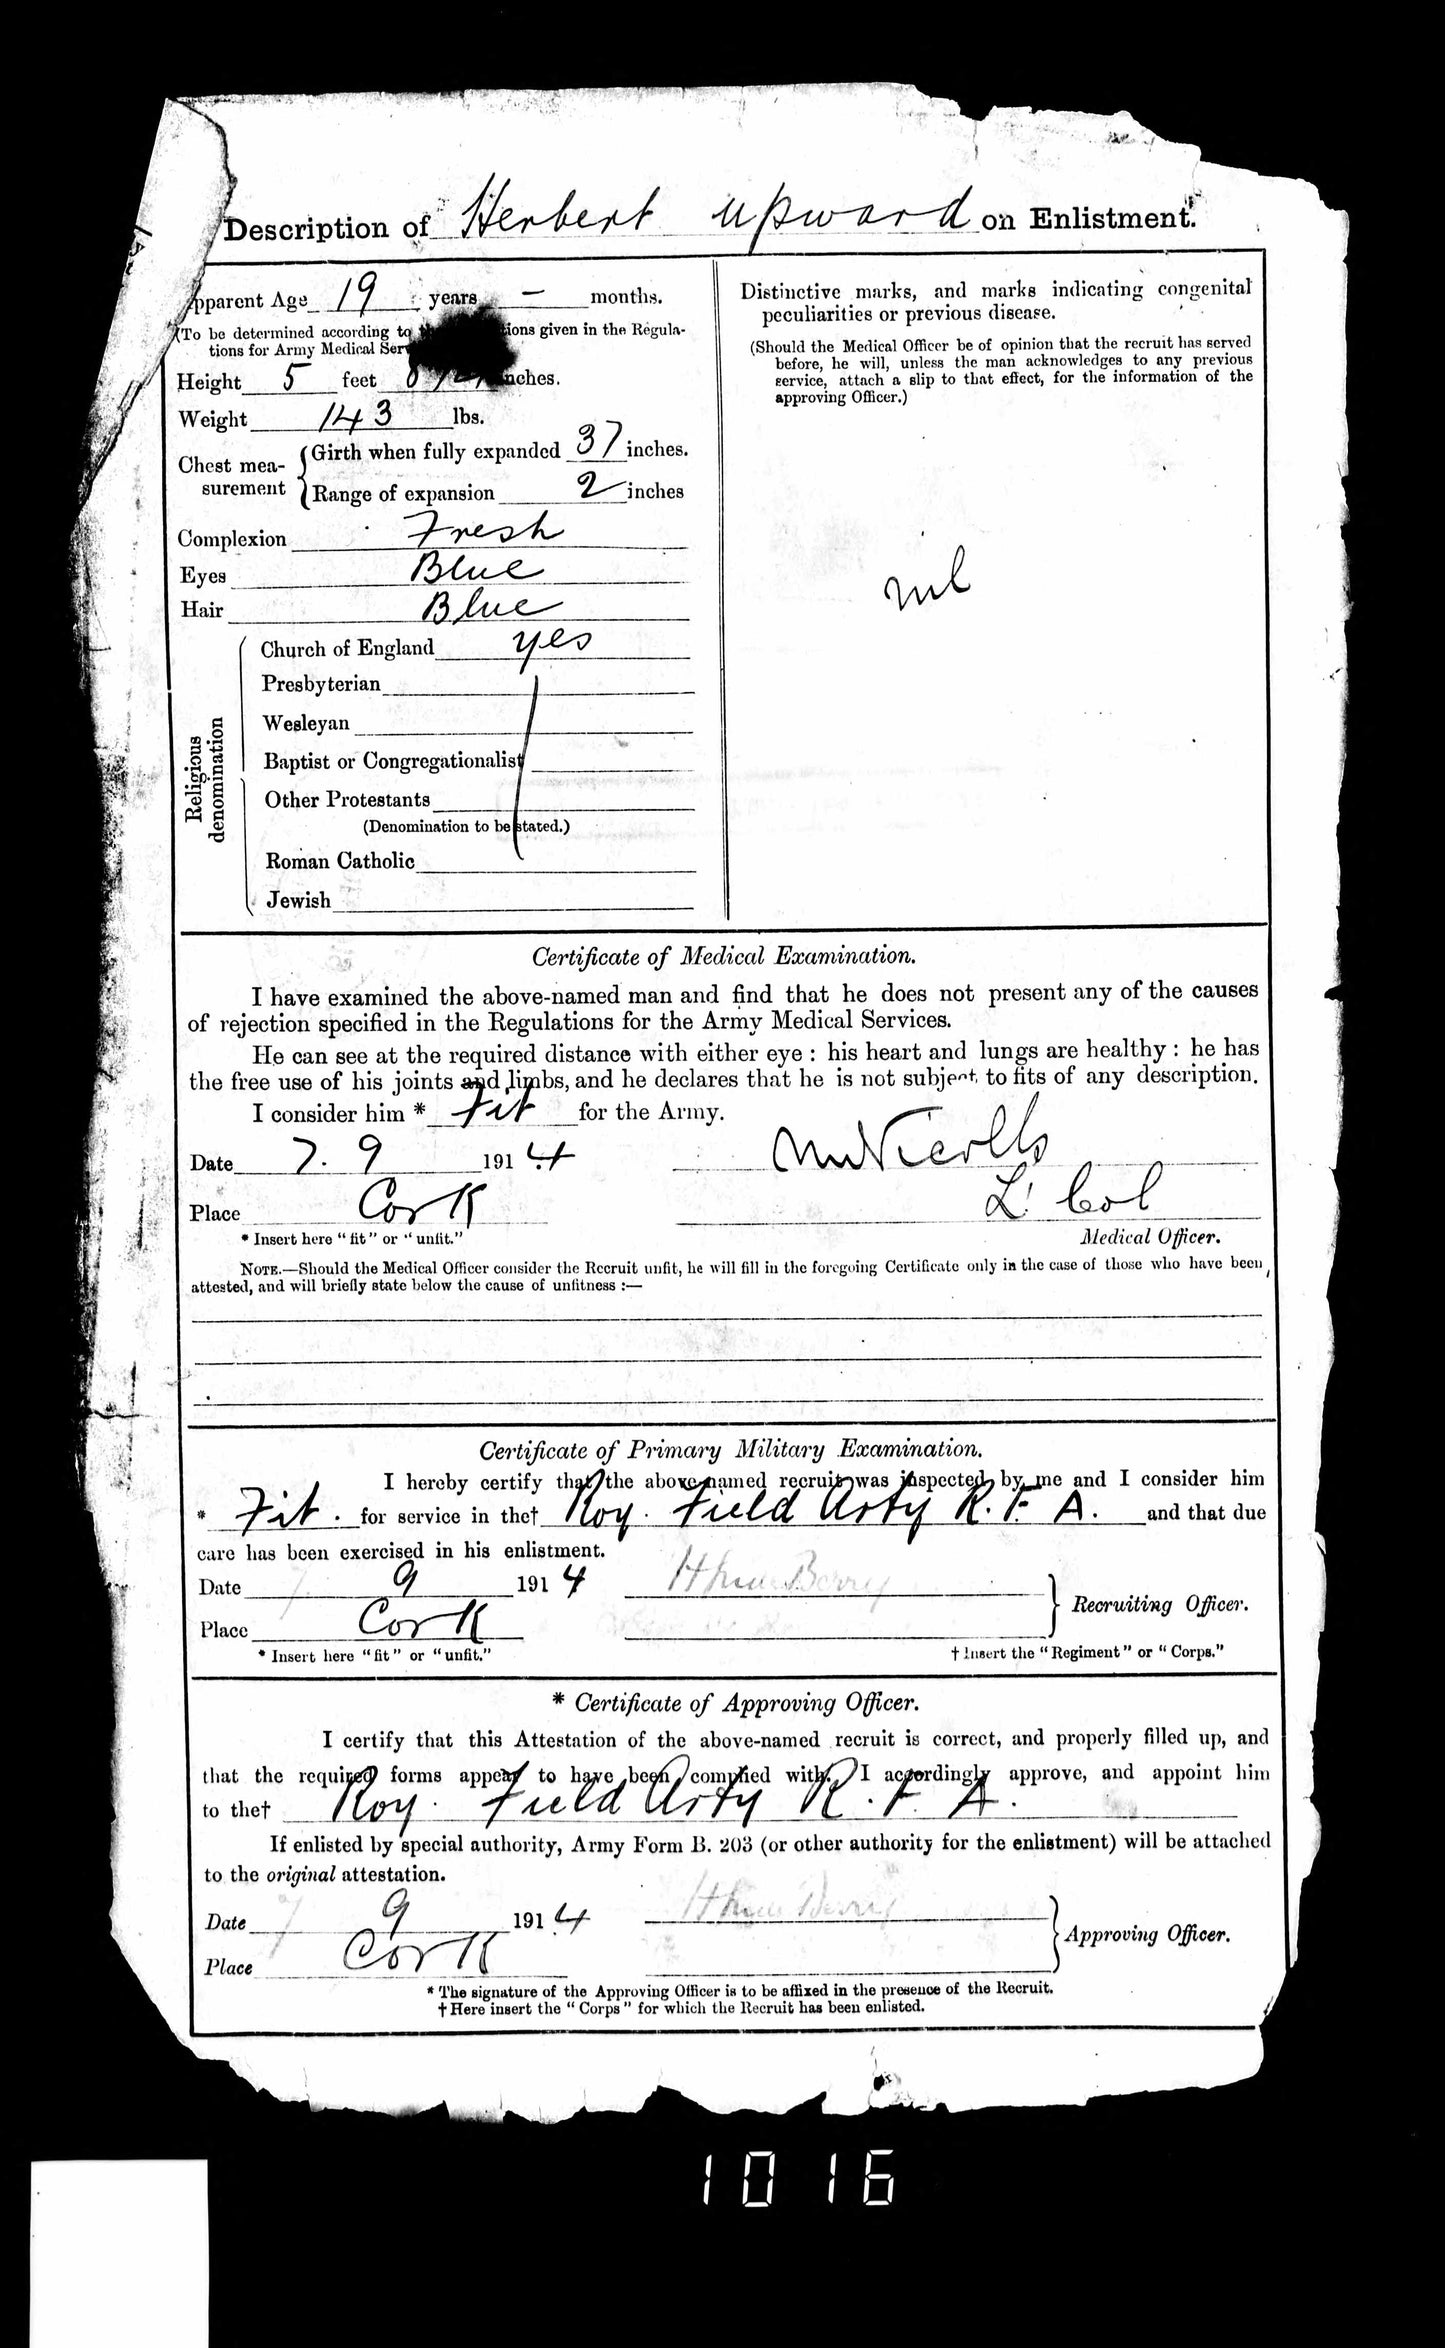 Description of Herbert Upward on Enlistment.
Apparent Age 19 years – months.
(To be determined according to ions given in the Regula-
tions for Army Medical Serv
Height 5 feet 8 inches.
Weight 143 lbs.
Chest mea-
surement
Girth when fully expanded 37 inches.
Range of expansion 2 inches
Complexion Fresh
Eyes Blue
Hair Blue
Religious
denomination
Church of England yes
Presbyterian
Wesleyan
Baptist or Congregationalist
Other Protestants
(Denomination to be stated.)
Roman Catholic
Jewish
Distinctive marks, and marks indicating congenital
peculiarities or previous disease.
(Should the Medical Officer be of opinion that the recruit has served
before, he will, unless the man acknowledges to any previous
service, attach a slip to that effect, for the information of the
approving Officer.)
nil
Certificate of Medical Examination.
I have examined the above-named man and find that he does not present any of the causes
of rejection specified in the Regulations for the Army Medical Services.
He can see at the required distance with either eye : his heart and lungs are healthy : he has
the free use of his joints and limbs, and he declares that he is not subject to fits of any description.
I consider him * Fit for the Army.
Date 7. 9 1914
Place Cork
Lt Col
Medical Officer.
* Insert here "fit" or "unfit."
NOTE.—Should the Medical Officer consider the Recruit unfit, he will fill in the foregoing Certificate only in the case of those who have been
attested, and will briefly state below the cause of unfitness :—
Certificate of Primary Military Examination.
I hereby certify that the above-named recruit was inspected by me and I consider him
* Fit. for service in the† Roy. Field Arty R. F. A. and that due
care has been exercised in his enlistment.
Date 7 9 1914 Berry
Place Cork
Recruiting Officer.
* Insert here "fit" or "unfit."
† Insert the "Regiment" or "Corps."
* Certificate of Approving Officer.
I certify that this Attestation of the above-named recruit is correct, and properly filled up, and
that the required forms appear to have been complied with. I accordingly approve, and appoint him
to the† Roy. Field Arty R. F. A.
If enlisted by special authority, Army Form B. 203 (or other authority for the enlistment) will be attached
to the original attestation.
Date 7 9 1914 Berry
Place Cork
Approving Officer.
* The signature of the Approving Officer is to be affixed in the presence of the Recruit.
† Here insert the "Corps" for which the Recruit has been enlisted.
1016